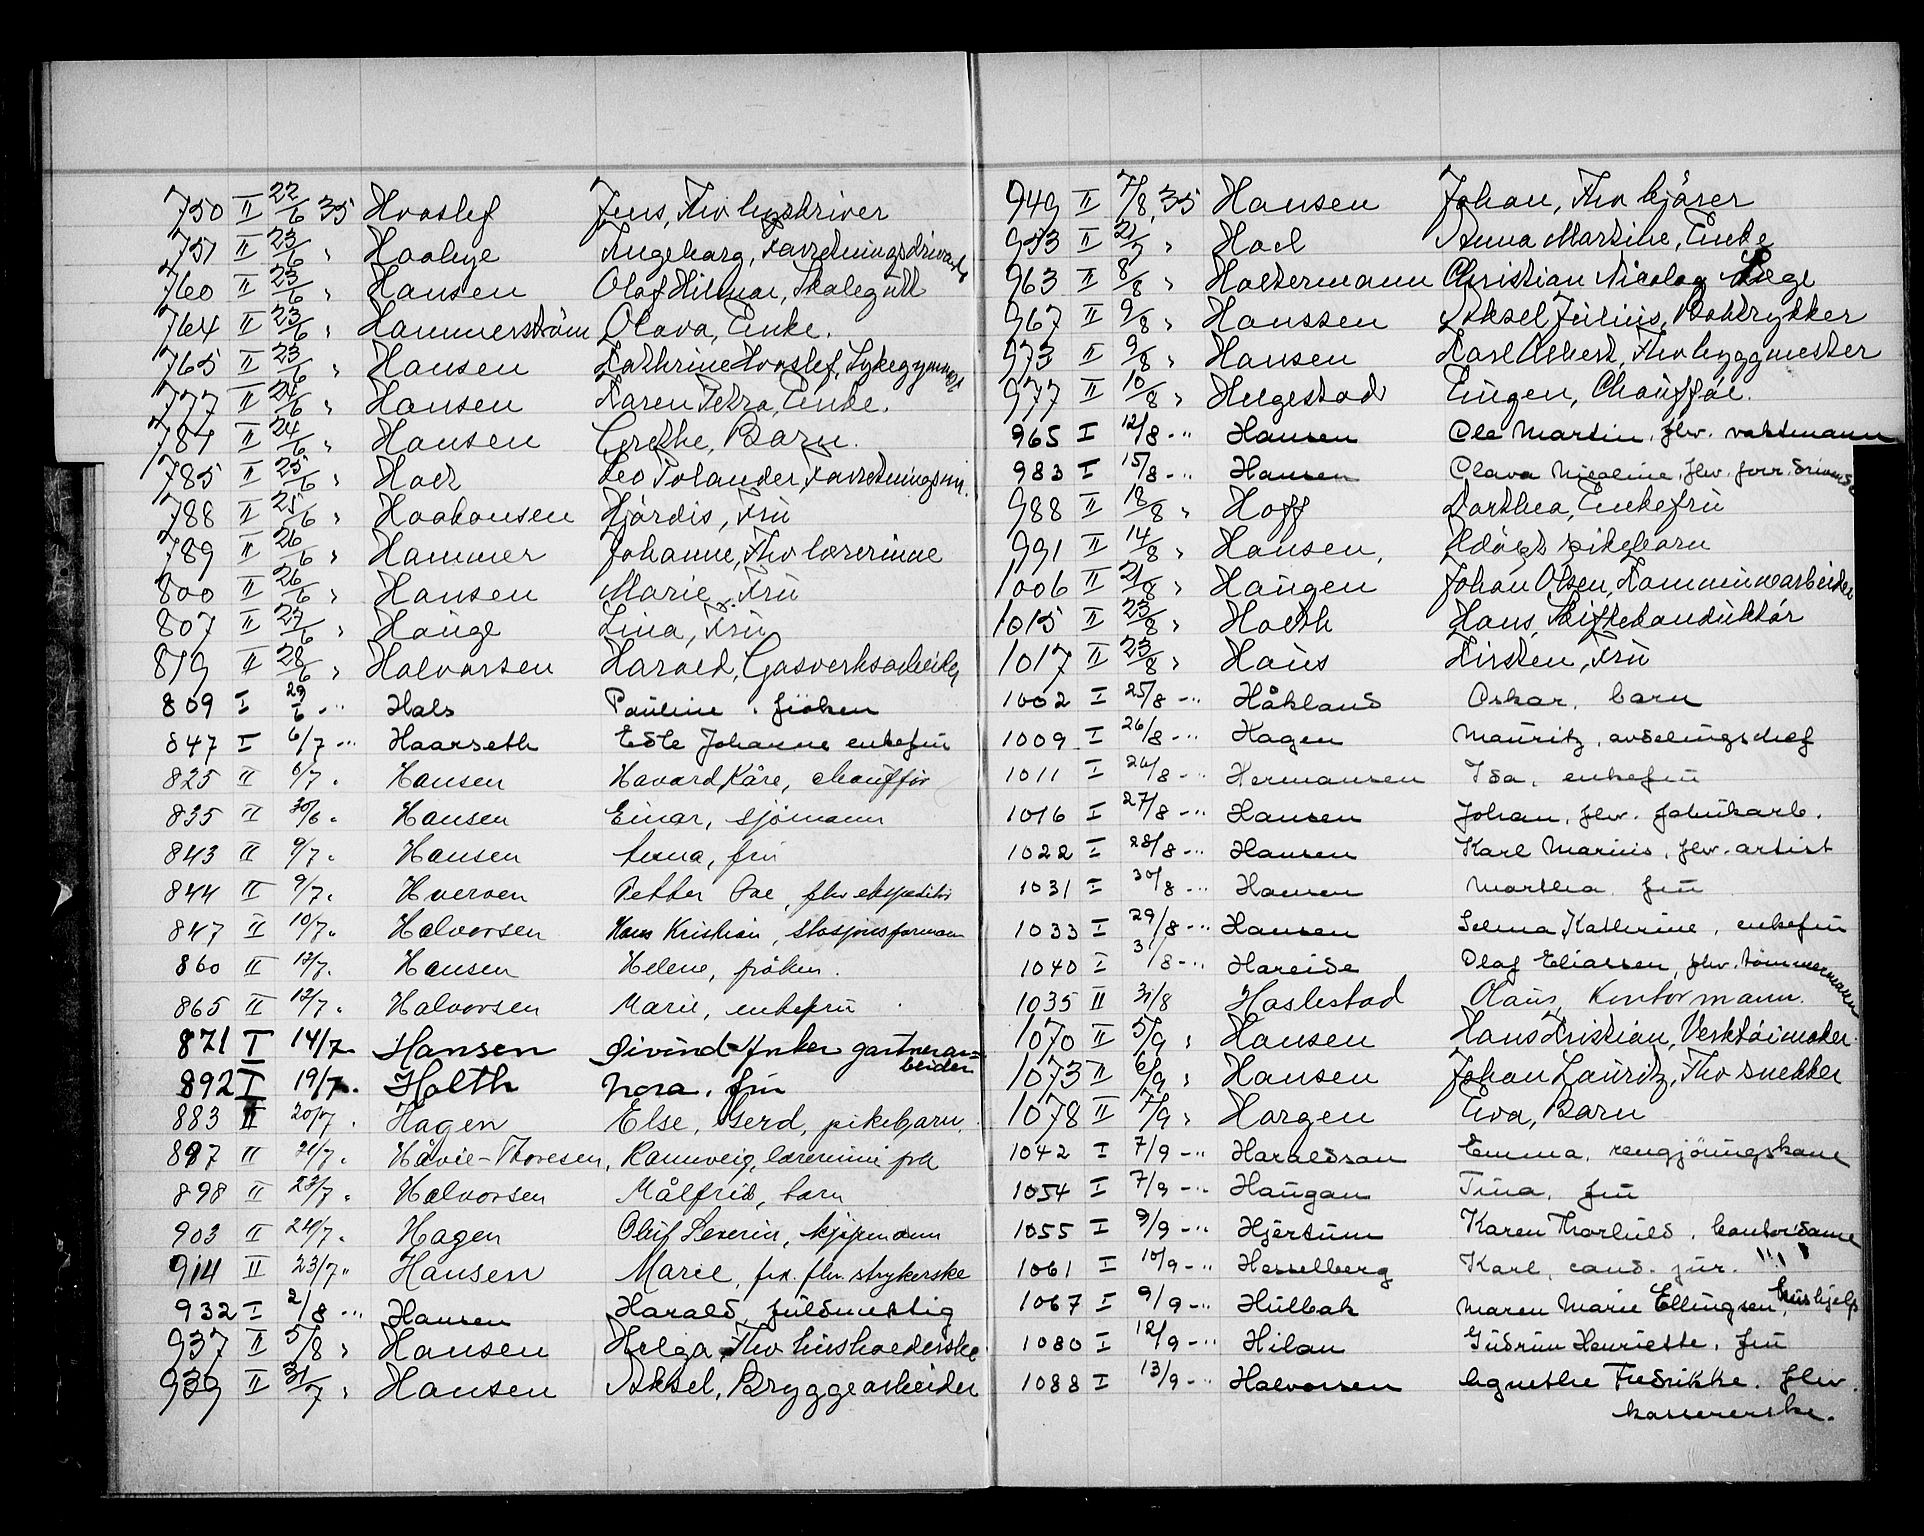 750 II 22/6 35 Hovslef Jens, Fhv
751 II 23/6 " Ingeborg,
760 II 23/6 " Hansen Olaf Hilmar, Skolegutt
764 II 23/6 " Hammerstrøm Olava, Enke.
765 II 23/6 " Hansen Kathrine Hovslef,
777 II 24/6 " Hansen Karen Petra, Enke.
781 II 24/6 " Hansen Grethe, Barn.
785 II 25/6 " Leo Polander,
788 II 25/6 " Haakonsen Hjørdis, Fru
789 II 26/6 " Hammer Johanne, Fhv lærerinne
800 II 26/6 " Hansen Marie, Fru
807 II 27/6 " Hauge Lina, Fru
819 II 28/6 " Halvorsen Harald, Gasverksarbeider
809 I 29/6 -"- Hals Pauline, frøken
847 I 6/7 -"- Haarseth Edle Johanne enkefru
825 II 6/7 " Hansen Havard Kåre, chauffør
835 II 30/6 " Hansen Einar, sjømann
843 II 9/7 " Hansen Anna, fru
844 II 9/7 " Hverven Petter
847 II 10/7 " Halvorsen Hans Kristian, Stasjonsformann
860 II 12/7 " Hansen Helene, frøken.
865 II 12/7 " Halvorsen Marie, enkefru
871 I 14/7 " Hansen Øivind Anker gartnerar=
beider
892 I 19/7 " Holth Nora, fru
883 II 20/7 " Hagen Else, Gerd, pikebarn.
897 II 21/7 " Håvie-Thoresen, Rannveig, lærerinne frk
898 II 23/7 " Halvorsen Målfrid, barn
903 II 24/7 " Hagen Oluf Severin, kjøpmann
914 II 23/7 " Hansen Marie, frk. fhv. strykerske
932 I 2/8 -"- Hansen Harald, fuldmektig
937 II 5/8 " Hansen Helga, Fhv husholderske
939 II 31/7 " Hansen Aksel, Bryggearbeider
949 II 7/8 35 Hansen Johan, Fhv kjører
953 II 21/7 " Hoel Anna Martine, Enke
963 II 8/8 " Holtermann Christian Nicolay Læge
967 II 9/8 " Hanssen Aksel Julius, Boktrykker
973 II 9/8 " Hansen Karl Albert, Fhv byggmester
977 II 10/8 " Helgestad Eugen, Chauffør.
965 I 12/8 -"- Hansen Ole Martin, fhv. vaktmann
983 I 15/8 -"- Hansen Olava Nicoline, fhv. forr. driverske
988 II 18/8 " Hoff Dorthea, Enkefru
991 II 14/8 " Hansen, pikebarn
1006 II 21/8 " Haugen Johan Olsen, Kommunearbeider
1015 II 23/8 " Holth Hans, Skiftekonduktør
1017 II 23/8 " Haus Kirsten, Fru
1002 I 25/8 -"- Håkland Oskar, barn
1009 I 26/8 -"- Hagen Mauritz, avdelingschef
1011 I 26/8 -"- Hermansen Ida, enkefru
1016 I 27/8 -"- Hansen Johan, fhv. fabrikarb.
1022 I 28/8 -"- Hansen Karl Marius, fhv. artist
1031 I 30/8 -"- Hansen Martha fru
1033 I 29/8 -"- Hansen Selma Kathrine, enkefru
1040 I 31/8 -"- Hareide Olaf Eliassen, fhv. tømmermann
1035 II 31/8 Haslestad Olaus, Kontormann.
1070 II 5/9 " Hansen Hans Kristian, Verktøimaker
1073 II 6/9 " Hansen Johan Lauritz, Fhv snekker
1078 II 7/9 " Horgen Eva, Barn
1042 I 7/9 -"- Haraldson Emma, rengjøringskone
1054 I 7/9 -"- Haugan Tina, fru
1055 I 9/9 -"- Hjertum Karen Thorhild, kontordame
1061 I 10/9 -"- Hesselberg Karl, cand. jur.
1067 I 9/9 -"- Hulbak Maren Marie Ellingsen, hushjelp
1080 I 12/9 -"- Hilan Gudrun Henriette, fru
1088 I 13/9 -"- Halvorsen Agnethe Fredrikke. fhv.
kassererske.